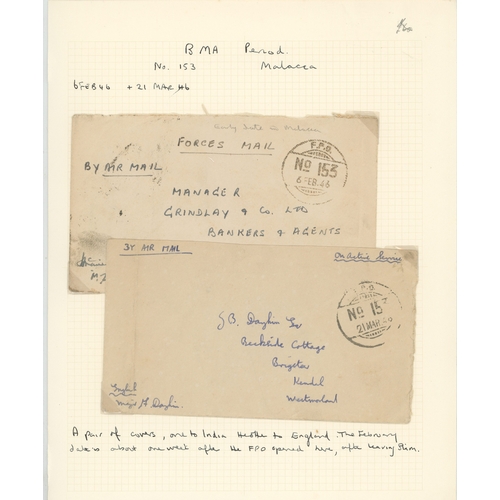 BMA Period.
No. 153 Malacca
6 FEB 46 + 21 MAR 46
early date in Malacca
FORCES MAIL
BY AIR MAIL
F.P.O.
No 153
6 FEB. 46
MANAGER
GRINDLAY & Co. LTD
BANKERS & AGENTS
BY AIR MAIL
On Active Service
F.P.O.
No 153
21 MAR 46
J.B. Esq
Beckside Cottage
Kendal
Westmorland
English
Major
A pair of covers, one to India the other to England. The February
date is about one week after the FPO opened here, after leaving Siam.